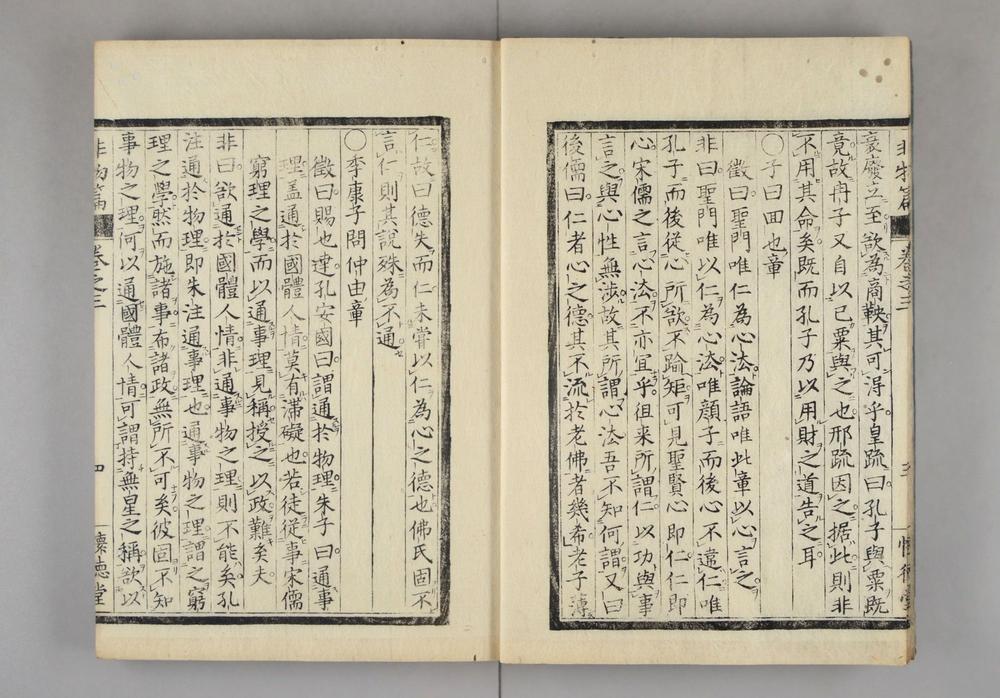 衰廢立至欲為商鞅其可得乎皇疏曰孔子與粟既
竟故冉子又自以己粟與之也邢疏因之据此則非
不用其命矣既而孔子乃以用財之道告之耳
○子曰回也章
徵曰聖門唯仁為心法論語唯此章以心言之
非曰聖門唯以仁為心法唯顏子而後心不違仁唯
孔子而後從心所欲不踰矩可見聖賢心即仁仁即
心宋儒之言心法不亦宜乎徂來所謂仁以功與事
言之與心性無涉故其所謂心法吾不知何謂又曰
後儒曰仁者心之德其不流於老佛者幾希老子薄
仁故曰德失而仁未嘗以仁為心之德也佛氏固不
言仁則其說殊為不通
○李康子問仲由章
徵曰賜也達孔安國曰謂通於物理朱子曰通事
理盖通於國體人情莫有滞礙也若徒從事宋儒
窮理之學而以通事理見稱授之以政難矣夫
非曰欲通於國體人情非通事物之理則不能矣孔
注通於物理即朱注通事理也通事物之理謂之窮
理之學然而施諸事布諸政無所不可矣彼固不知
事物之理何以通國體人情可謂持無星之稱欲以
非物篇 卷之三 四 懷德堂